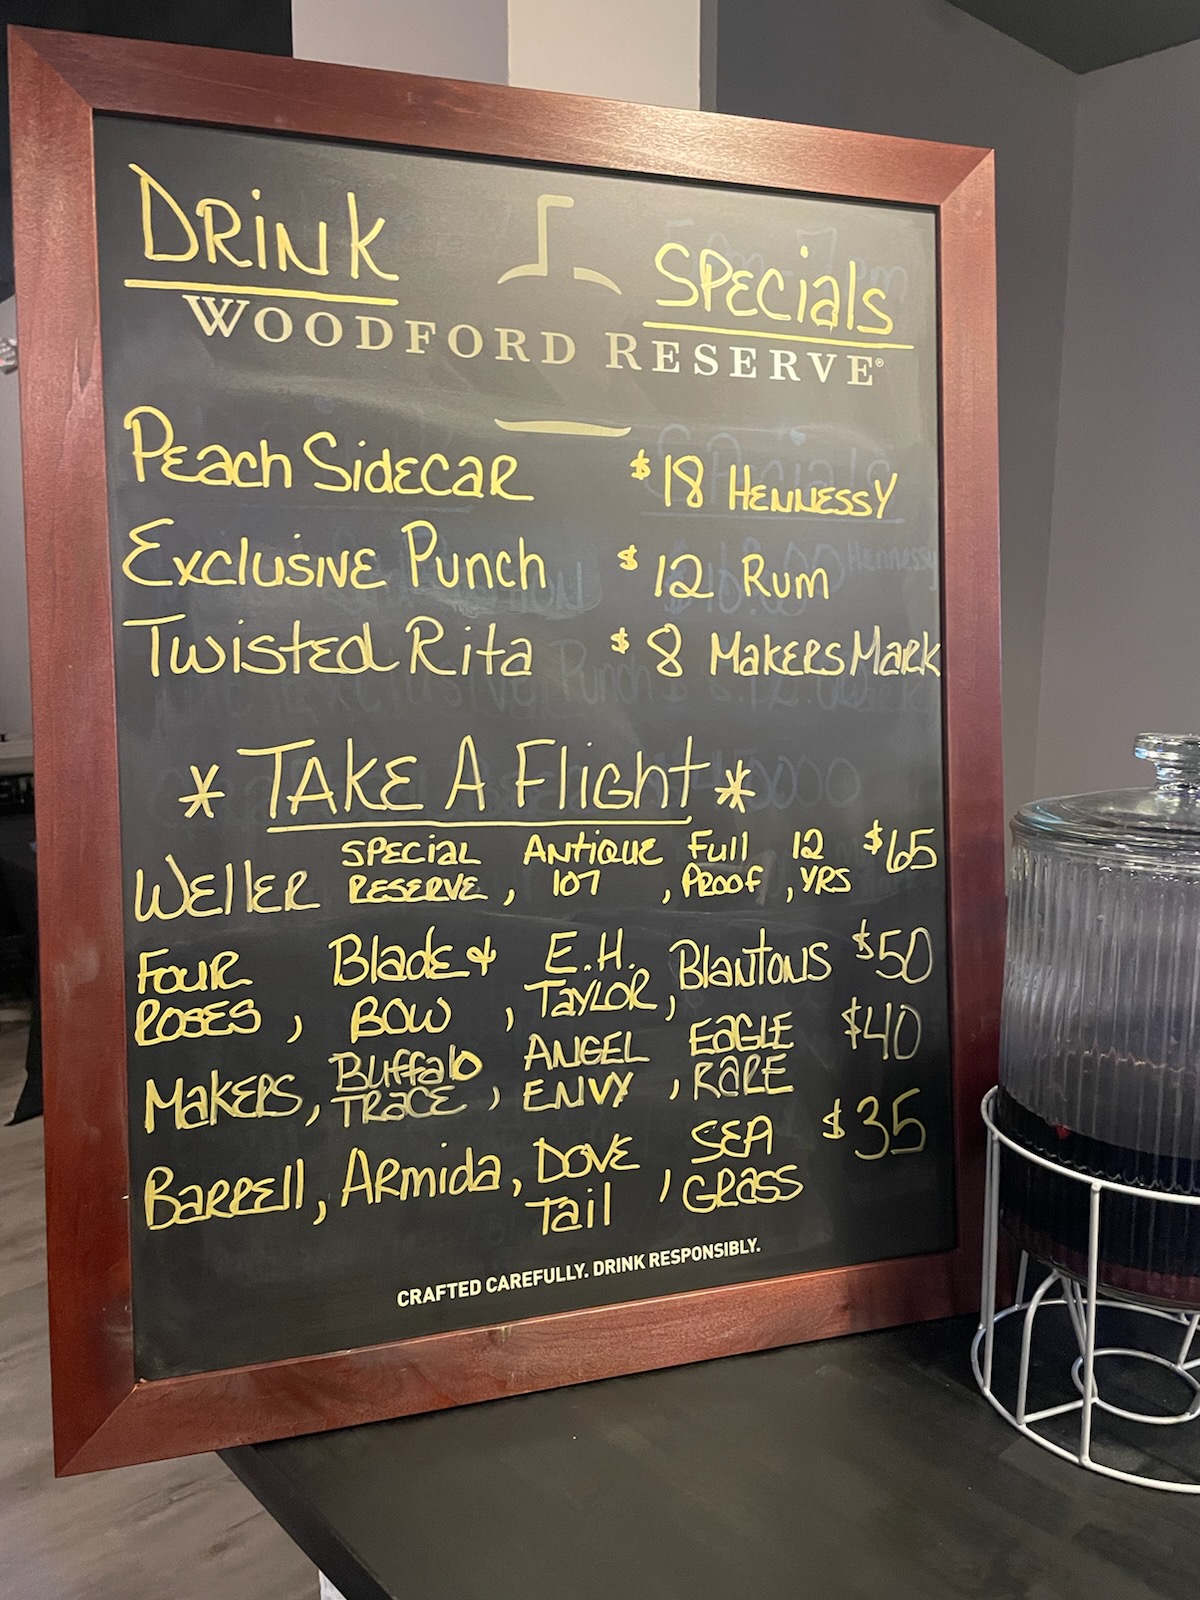 DRINK SPECIALS
WOODFORD RESERVE®
PEACH SIDECAR $18 HENNESSY
EXCLUSIVE PUNCH $12 RUM
TWISTED RITA $8 MAKERS MARK
* TAKE A FLIGHT *
WELLER SPECIAL RESERVE, ANTIQUE 107, FULL PROOF, 12 YRS $65
FOUR ROSES, BLADE & BOW, E.H. TAYLOR, BLANTONS $50
MAKERS, BUFFALO TRACE, ANGEL ENVY, EAGLE RARE $40
BARRELL, ARMIDA, DOVE TAIL, SEA GRASS $35
CRAFTED CAREFULLY. DRINK RESPONSIBLY.